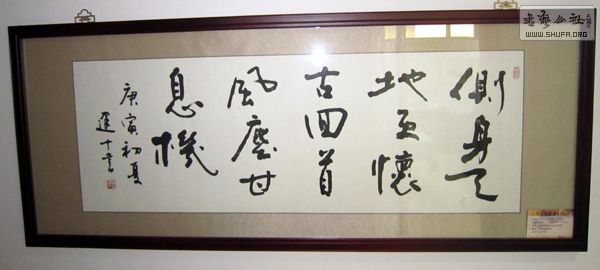 側身天
地更懷
古回首
風塵甘
息機
庚寅初夏
書
書藝公社
WWW.SHUFA.ORG